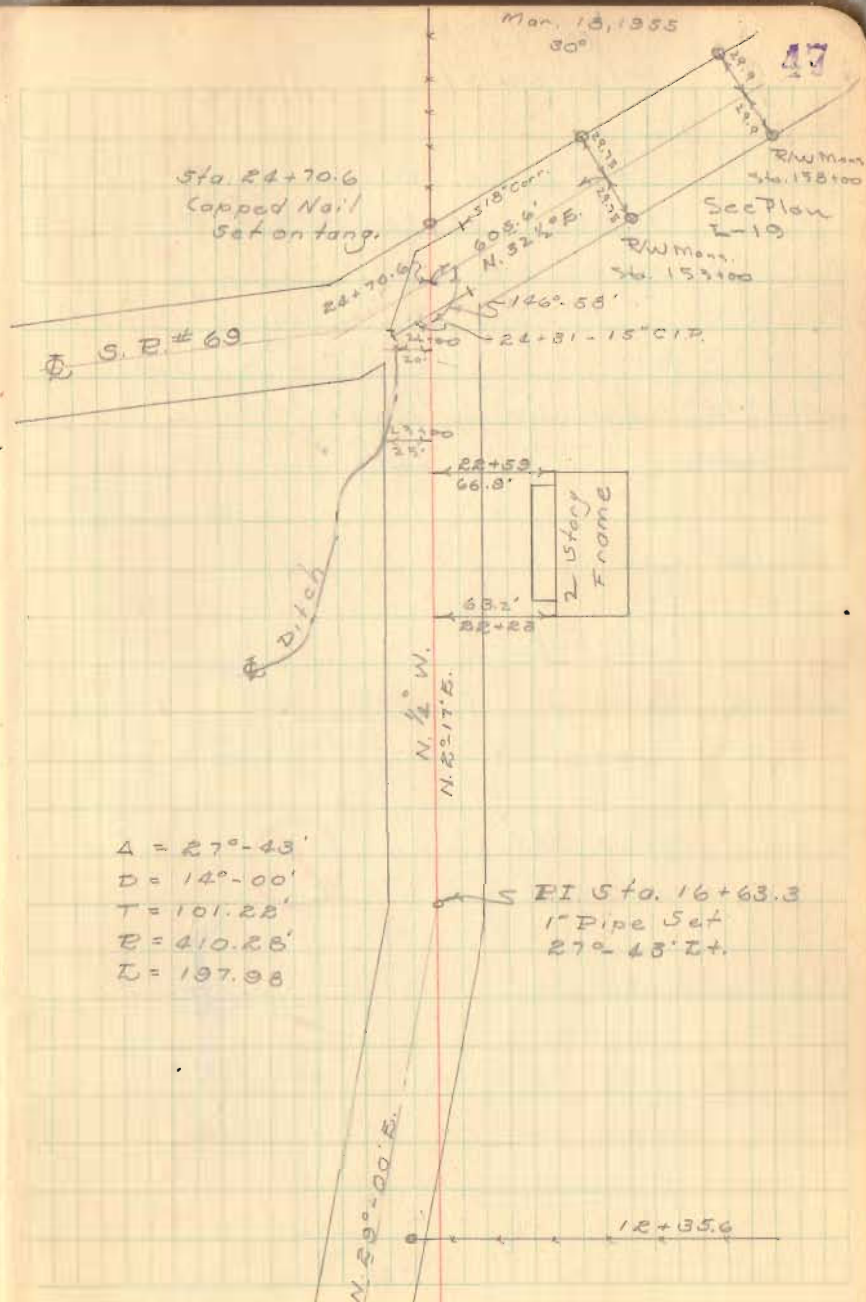 Mar. 18, 1955
30°
47
29.9
29.9
R/W Mons
Sta. 158+00
See Plan
L-19
29.75
29.75
R/W Mons.
Sta. 153+00
Sta. 24+70.6
Capped Nail
Set on tang.
S18" Corr.
605.6'
N. 32 1/2° E.
24+70.6
146°-58'
24+31-15" C.I.P.
24+00
20'
S.R. # 69
23+00
25'
22+59
66.8'
2 Story
Frame
63.2'
22+23
Ditch
N. 1/2° W.
N. 2°-17' E.
Δ = 27°-43'
D = 14°-00'
T = 101.22'
R = 410.28'
L = 197.98
PI Sta. 16+63.3
1" Pipe Set
27°-43' Lt.
N. 29°-00' E.
12+35.6